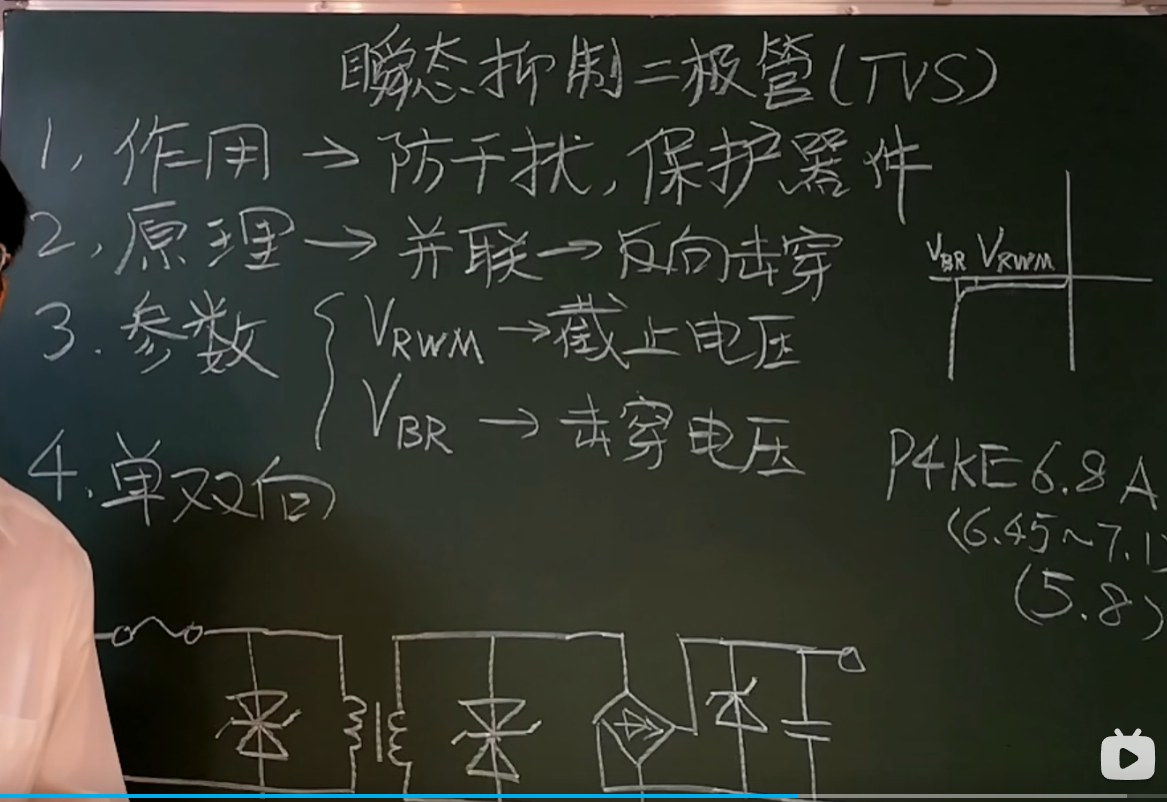 瞬态抑制二极管(TVS)
1,作用→防干扰,保护器件
2,原理→并联→反向击穿
VBR VRWM
3.参数{VRWM→截止电压
VBR→击穿电压
4.单双向
P4KE6.8A
(6.45~7.1)
(5.8)